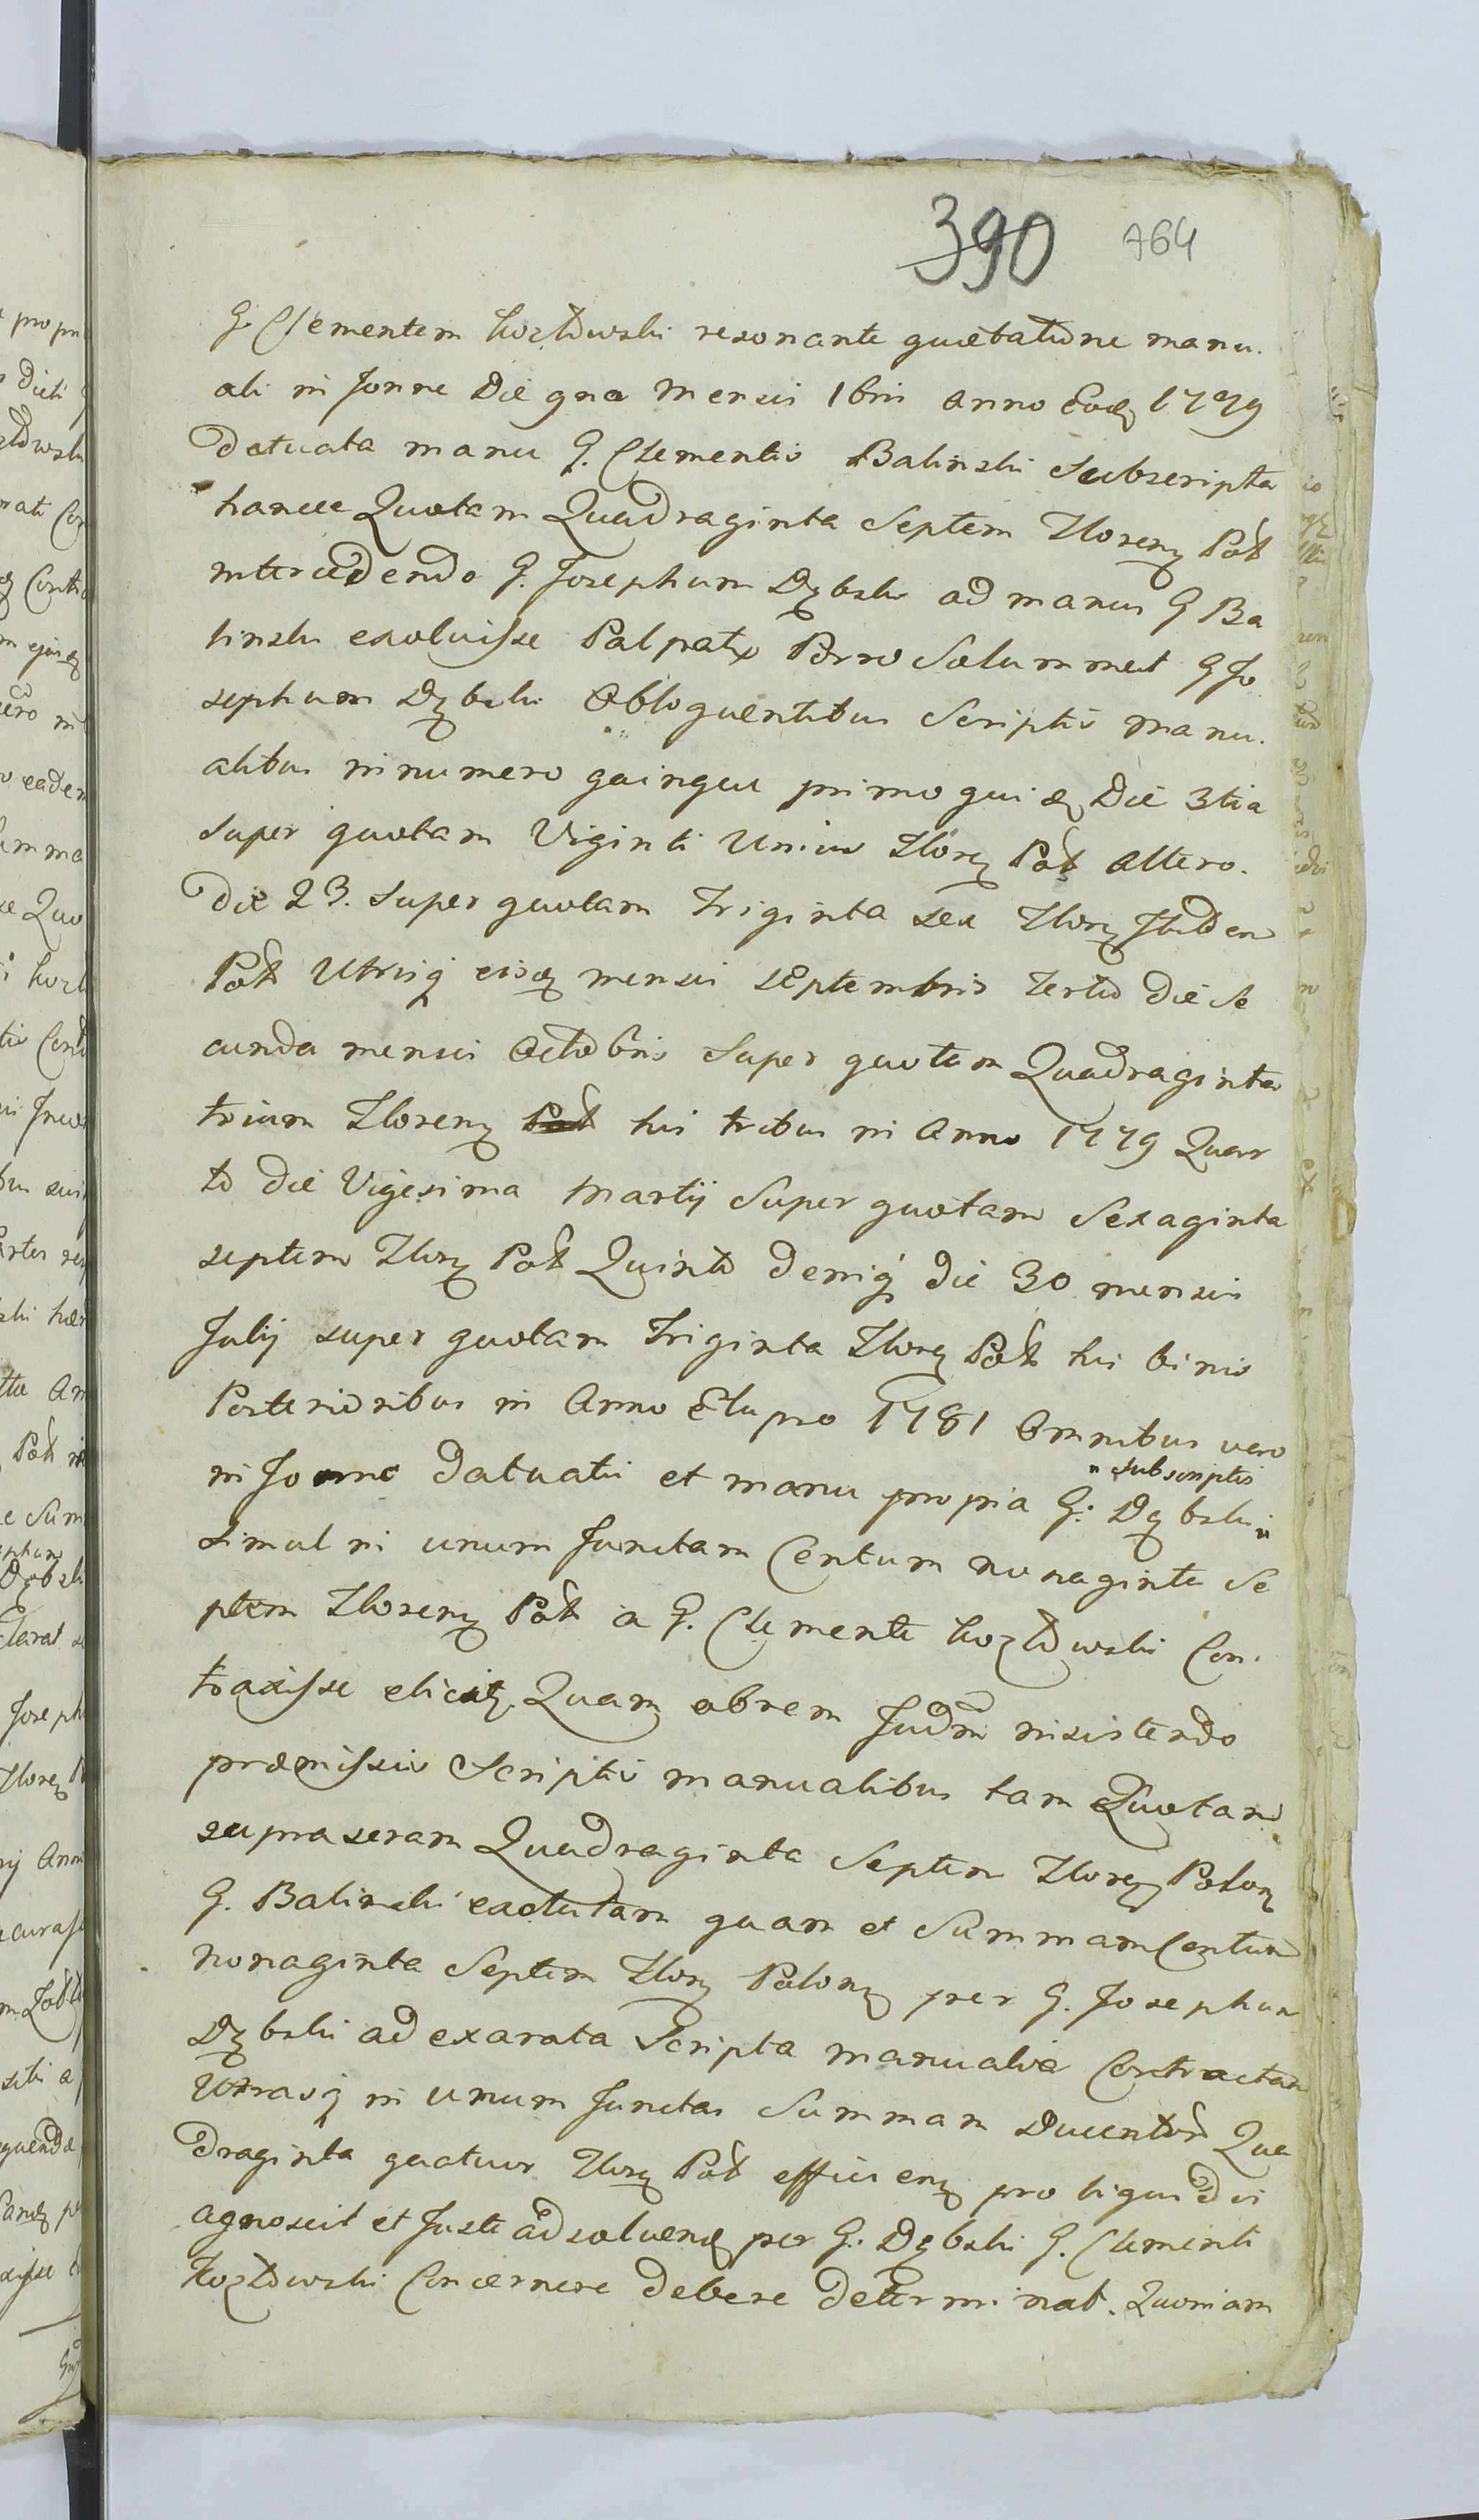 390 764
G. Clementem Kozłowski resonante quietatione manu.
ali in fonne Die gna Mensis 1bris anno Eodꝫ 1779
Datuata manu G. Clementis Balinski Subscripta
hancce Quotam Quadraginta Septem Florenꝫ Pol
intercedendo G. Josephum Dębski ad manus G Ba
linski exoluisse Palpatꝫ Porro Solummet G Jo
sephum Dębski Obloquentibus Scriptis manu.
alibus in numero quinque primo quidꝫ Die 3tia
super quotam Viginti Unius Florꝫ Pol altero.
Die 23. super quotam triginta sex Florꝫ itidem
Pol Utrisqꝫ eisdꝫ mensis Septembris tertio die Se
cunda mensis Octobris Super quotam Quadraginta
trium Florenꝫ Pol his tribus in Anno 1779 Quar
to die Vigesima Martij Super quotam Sexaginta
septem Florꝫ Pol Quinto deniqꝫ die 30 mensis
Julij super quotam Triginta Florꝫ Pol his binis
Posterioribus in Anno Elapso 1781 Omnibus vero
in Fonne datuatis et manu propria G. Dębski " subscriptis
simul in unum Junctam Centum nonaginta Se
ptem Florenꝫ Pol a G. Clemente Kozłowski Con.
traxisse elicitꝫ. Quam obrem Judm insistendo
præmissis Scriptis manualibus tam Quotam
supraseram Quadraginta Septem Florꝫ Polonꝫ
G. Balinski exolutam quam et Summam Centum
nonaginta Septem Florꝫ Polonꝫ per G. Josephum
Dębski ad exarata Scripta manualia Contractam
Utrasqꝫ in unum Junctas Summam Ducentor Qua
draginta quatuor Florꝫ Pol efficienꝫ pro liquidis
agnoscit et Juste adsoluendꝫ per G. Dębski G. Clementi
Kozłowski Concernere debere determinat. Quoniam